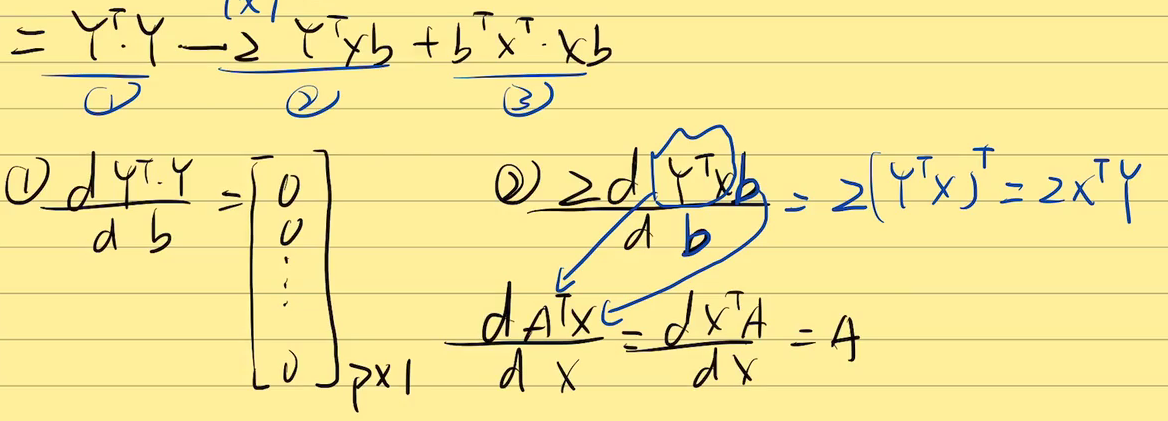 1×1
= Yᵀ·Y − 2 Yᵀxb + bᵀxᵀ·xb
① ② ③
① d Yᵀ·Y / d b = [0 0 ⋮ 0] p×1 ② 2d Yᵀxb / d b = 2(Yᵀx)ᵀ = 2xᵀY
d Aᵀx / d x = d xᵀA / d x = A